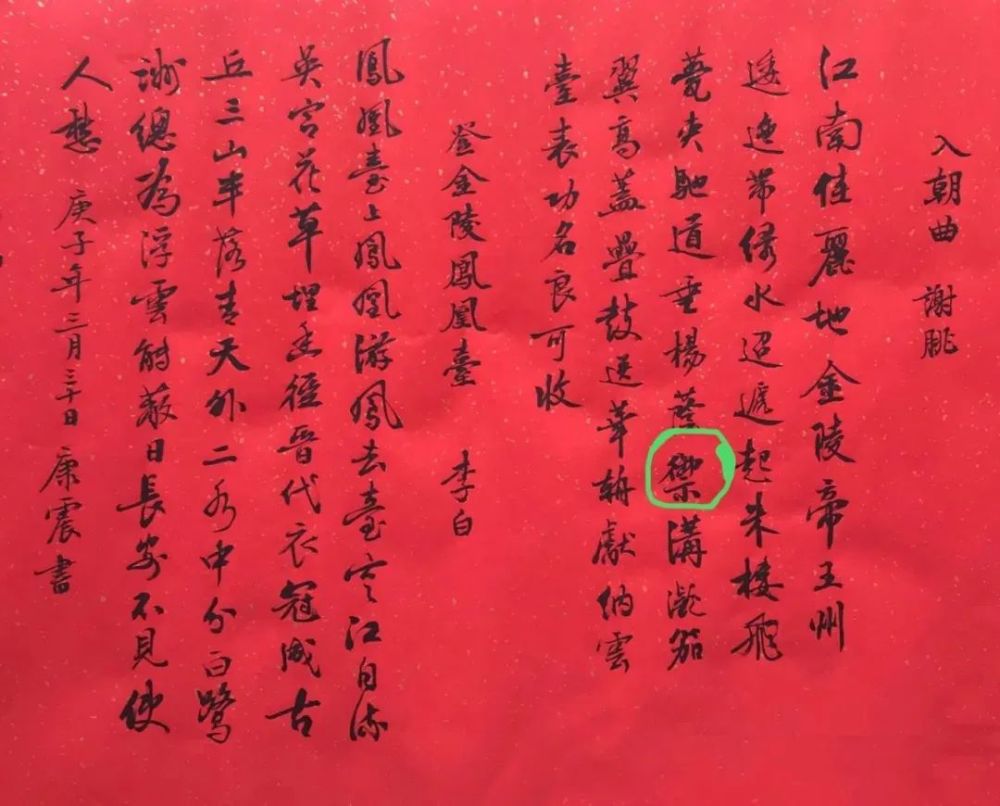 入朝曲 謝朓
江南佳麗地金陵帝王州
逶迤帶綠水迢遞起朱樓飛
甍夾馳道垂楊蔭禦溝凝笳
翼高蓋疊鼓送華輈獻納雲
臺表功名良可收
登金陵鳳凰臺 李白
鳳凰臺上鳳凰游鳳去臺空江自流
吳宮花草埋幽徑晉代衣冠成古
丘三山半落青天外二水中分白鷺
洲總為浮雲能蔽日長安不見使
人愁 庚子年三月三十日 康震書